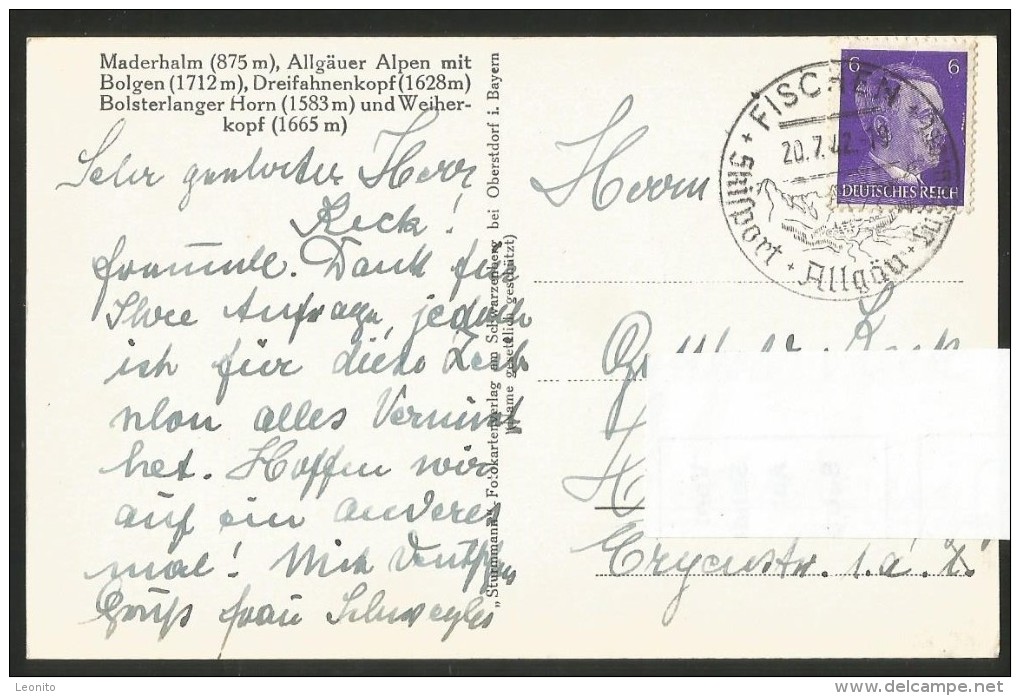 Maderhalm (875 m), Allgäuer Alpen mit
Bolgen (1712 m), Dreifahnenkopf (1628m)
Bolsterlanger Horn (1583 m) und Weiher-
kopf (1665 m)
Sehr geehrter Herr
Reck!
Dank für
Ihre Anfrage, jedoch
ich für diese Zeit
schon alles Vermiet
het. Hoffen wir
auf ein anderes
mal! Mit
Gruß Frau
„Sturmmann“-Fotokartenverlag am Schwarzenberg bei Oberstdorf i. Bayern
(Name gesetzlich geschützt)
Herrn
6 6
DEUTSCHES REICH
FISCHEN
20.7.42.-19
Allgäu
Leonito
www.delcampe.net